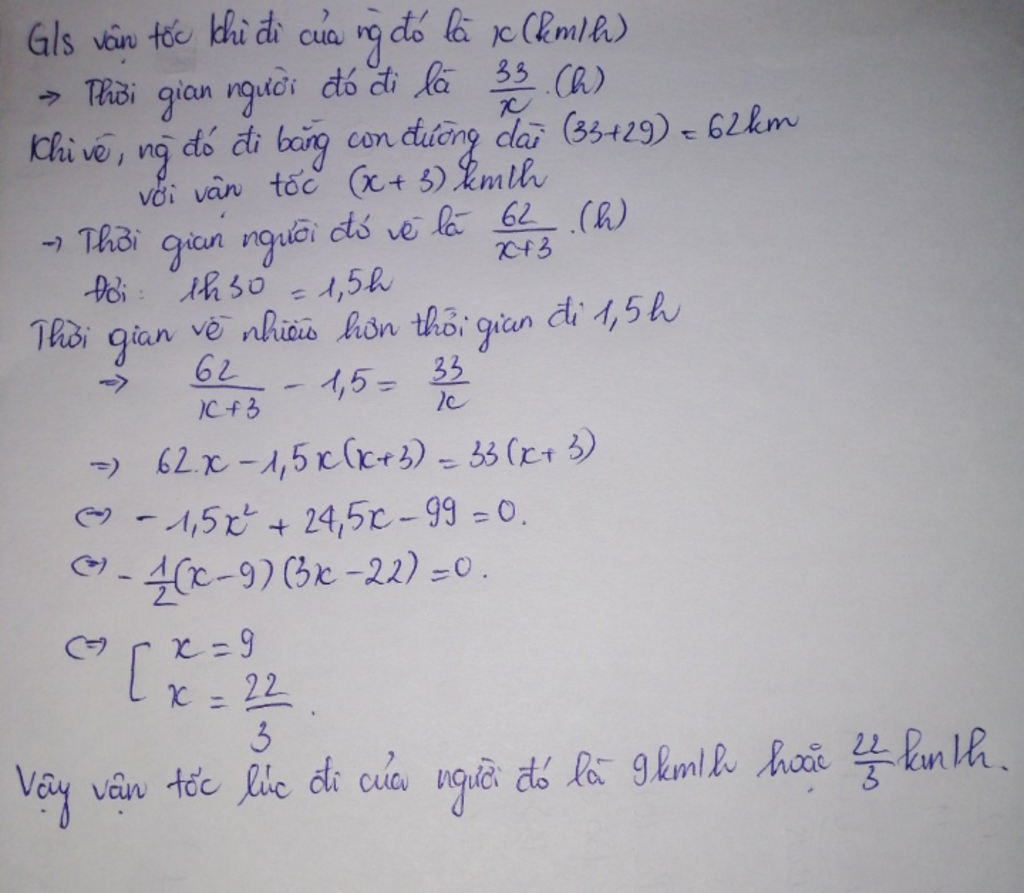 G/s vận tốc khi đi của ng đó là x (km/h)
→ Thời gian người đó đi là 33/x (h)
Khi về, ng đó đi bằng con đường dài (33+29) = 62km
với vận tốc (x + 3) km/h
→ Thời gian người đó về là 62/(x+3) (h)
Đổi: 1h30 = 1,5h
Thời gian về nhiều hơn thời gian đi 1,5h
=> 62/(x+3) - 1,5 = 33/x
=> 62.x - 1,5x(x+3) = 33(x+3)
<=> - 1,5x² + 24,5x - 99 = 0.
<=> - 1/2(x-9)(3x-22) = 0.
<=> [ x = 9
x = 22/3.
Vậy vận tốc lúc đi của người đó là 9km/h hoặc 22/3 km/h.